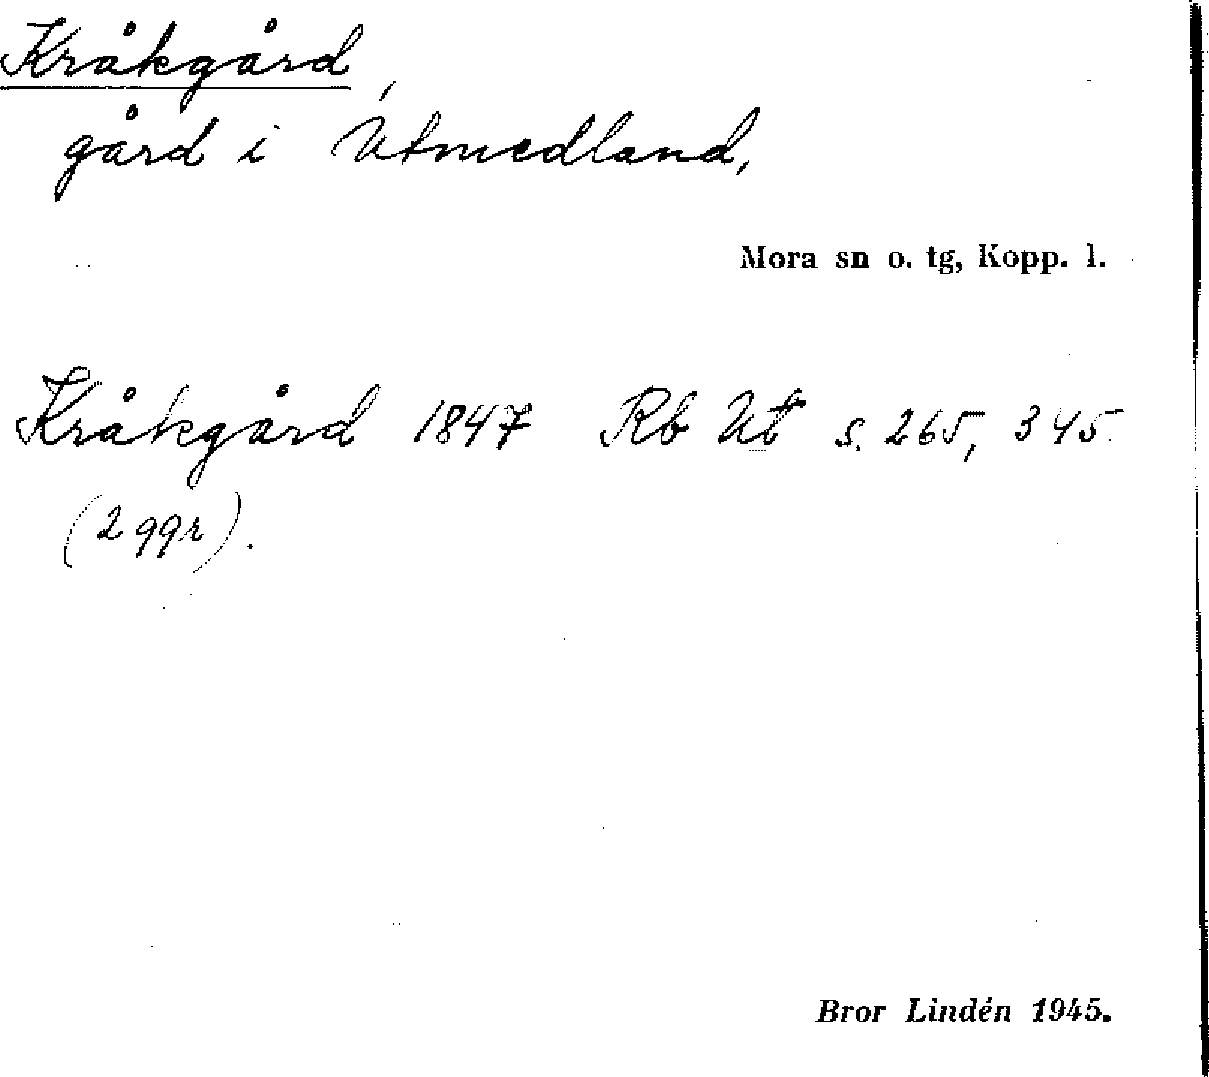 Kråkgård,
gård i Utmedland,
Mora sn o. tg, Kopp. l.
Kråkgård 1847 Rb Ut s. 265, 345.
(2 ggr).
Bror Lindén 1945.